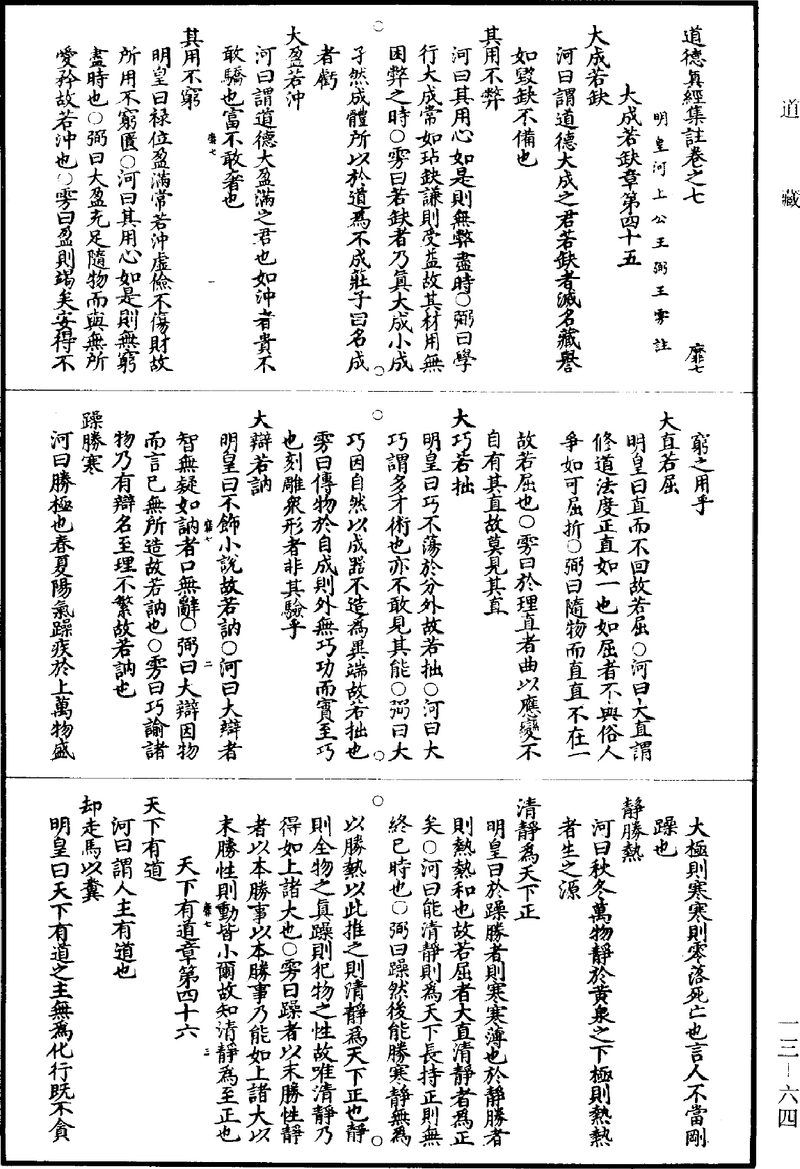 道藏
一三—六四
道德真經集註卷之七
靡七
明皇河上公王弼王雱註
大成若缺章第四十五
大成若缺
河曰謂道德大成之君若缺者滅名藏譽
如毀缺不備也
其用不弊
河曰其用心如是則無弊盡時○弼曰學
行大成常如玷缺謙則受益故其材用無
困弊之時○雱曰若缺者乃真大成小成
孑然成體所以於道為不成莊子曰名成
者虧
大盈若沖
河曰謂道德大盈滿之君也如沖者貴不
敢驕也富不敢奢也
靡七
一
其用不窮
明皇曰祿位盈滿常若沖虛儉不傷財故
所用不窮匱○河曰其用心如是則無窮
盡時也○弼曰大盈充足隨物而與無所
愛矜故若沖也○雱曰盈則竭矣安得不
窮之用乎
大直若屈
明皇曰直而不回故若屈○河曰大直謂
修道法度正直如一也如屈者不與俗人
爭如可屈折○弼曰隨物而直直不在一
故若屈也○雱曰於理直者曲以應變不
自有其直故莫見其直
大巧若拙
明皇曰巧不蕩於分外故若拙○河曰大
巧謂多才術也亦不敢見其能○弼曰大
巧因自然以成器不造為異端故若拙也
雱曰傳物於自成則外無巧功而實至巧
也刻雕衆形者非其驗乎
大辯若訥
明皇曰不飾小說故若訥○河曰大辯者
智無疑如訥者口無辭○弼曰大辯因物
靡七
二
而言已無所造故若訥也○雱曰巧諭諸
物乃有辯名至理不繁故若訥也
躁勝寒
河曰勝極也春夏陽氣躁疾於上萬物盛
大極則寒寒則零落死亡也言人不當剛
躁也
靜勝熱
河曰秋冬萬物靜於黃泉之下極則熱熱
者生之源
清靜為天下正
明皇曰於躁勝者則寒寒薄也於靜勝者
則熱熱和也故若屈者大直清靜者為正
矣○河曰能清靜則為天下長持正則無
終已時也○弼曰躁然後能勝寒靜無為
以勝熱以此推之則清靜為天下正也靜
則全物之真躁則犯物之性故唯清靜乃
得如上諸大也○雱曰躁者以末勝性靜
者以本勝事以本勝事乃能如上諸大以
末勝性則動皆小爾故知清靜為至正也
靡七
三
天下有道章第四十六
天下有道
河曰謂人主有道也
却走馬以糞
明皇曰天下有道之主無為化行既不貪